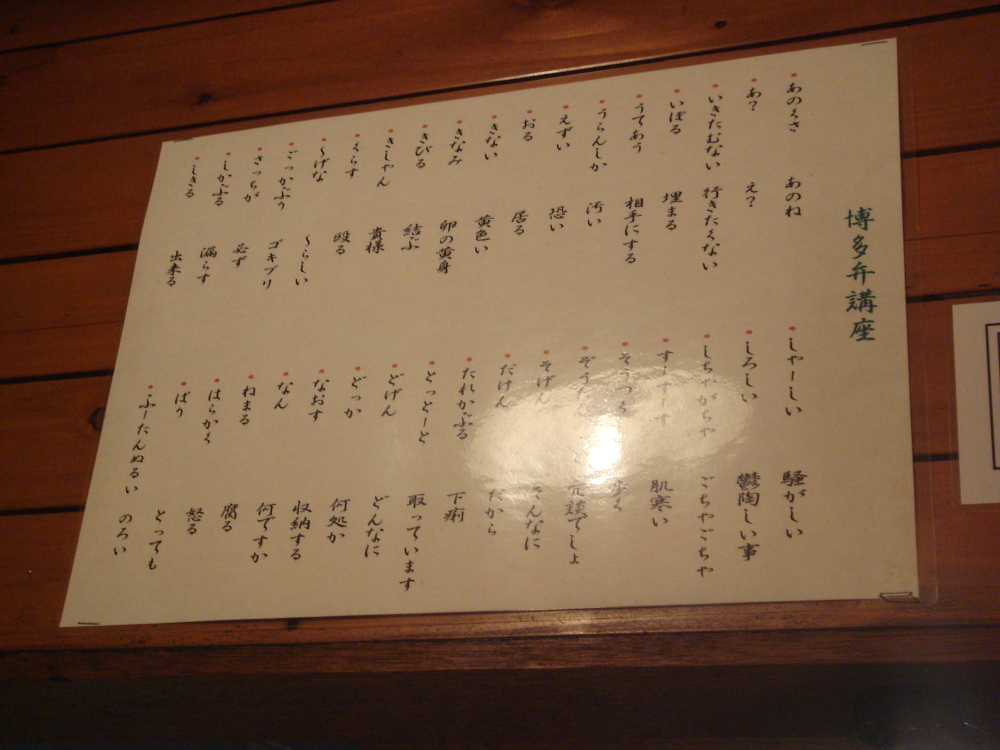 博多弁講座
・あのくさ　あのね
・あ?　え?
・いきたむない　行きたくない
・いぼる　埋まる
・うてあう　相手にする
・うらんしか　汚い
・えずい　恐い
・おる　居る
・きない　黄色い
・きなみ　卵の黄身
・きびる　結ぶ
・きしゃん　貴様
・くらす　殴る
・〜げな　〜らしい
・ごっかぶり　ゴキブリ
・さっちが　必ず
・しかぶる　漏らす
・しきる　出来る
・しゃーしい　騒がしい
・しろしい　鬱陶しい事
・しちゃがちゃ　ごちゃごちゃ
・すーすーす　肌寒い
・そうつく　歩く
・ぞうたん　冗談でしょ
・そげん　そんなに
・だけん　だから
・たれかぶる　下痢
・とっとーと　取っています
・どげん　どんなに
・どっか　何処か
・なおす　収納する
・なん　何ですか
・ねまる　腐る
・はらかく　怒る
・ばり　とっても
・ふーたんぬるい　のろい